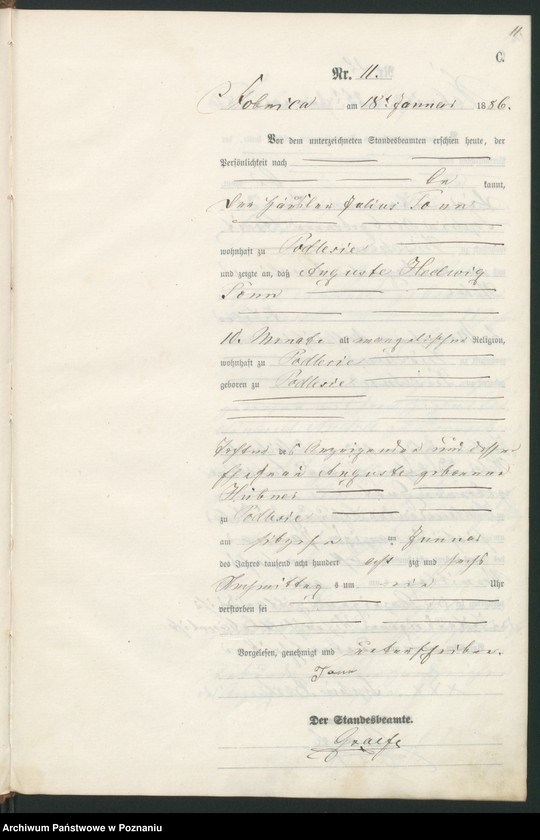 11.
C.
Nr. 11.
Kobnica am 18t Januar 1886.
Vor dem unterzeichneten Standesbeamten erschien heute, der
Persönlichkeit nach
be kannt,
der Häusler Julius Tonn
wohnhaft zu Podlesie
und zeigte an, daß Auguste Hedwig
Tonn
10. Monate alt evangelischer Religion,
wohnhaft zu Podlesie
geboren zu Podlesie
Tochter des Anzeigenden und dessen
Ehefrau Auguste geborene
Hübner
zu Podlesie
am Januar
des Jahres tausend acht hundert acht zig und sechs
Nachmittags um Uhr
verstorben sei
Vorgelesen, genehmigt und unterschrieben.
Tonn
Der Standesbeamte.
Graefe
Archiwum Państwowe w Poznaniu